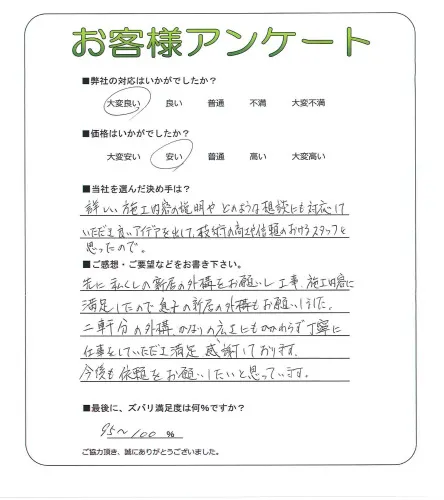 お客様アンケート
■弊社の対応はいかがでしたか？
大変良い 良い 普通 不満 大変不満
■価格はいかがでしたか？
大変安い 安い 普通 高い 大変高い
■当社を選んだ決め手は？
詳しい施工内容の説明や どのような相談にも対応して
いただき良いアイデアを出して、技術の高さや信頼のおけるスタッフと
思ったので。
■ご感想・ご要望などをお書き下さい。
先に私くしの新居の外構をお願いし 工事、施工内容に
満足したので息子の新居の外構もお願いしました。
二軒分の外構、かなりの広さにもかかわらず丁寧に
仕事をしていただき満足、感謝しております。
今後も依頼をお願いしたいと思っています。
■最後に、ズバリ満足度は何％ですか？
95～100 ％
ご協力頂き、誠にありがとうございました。